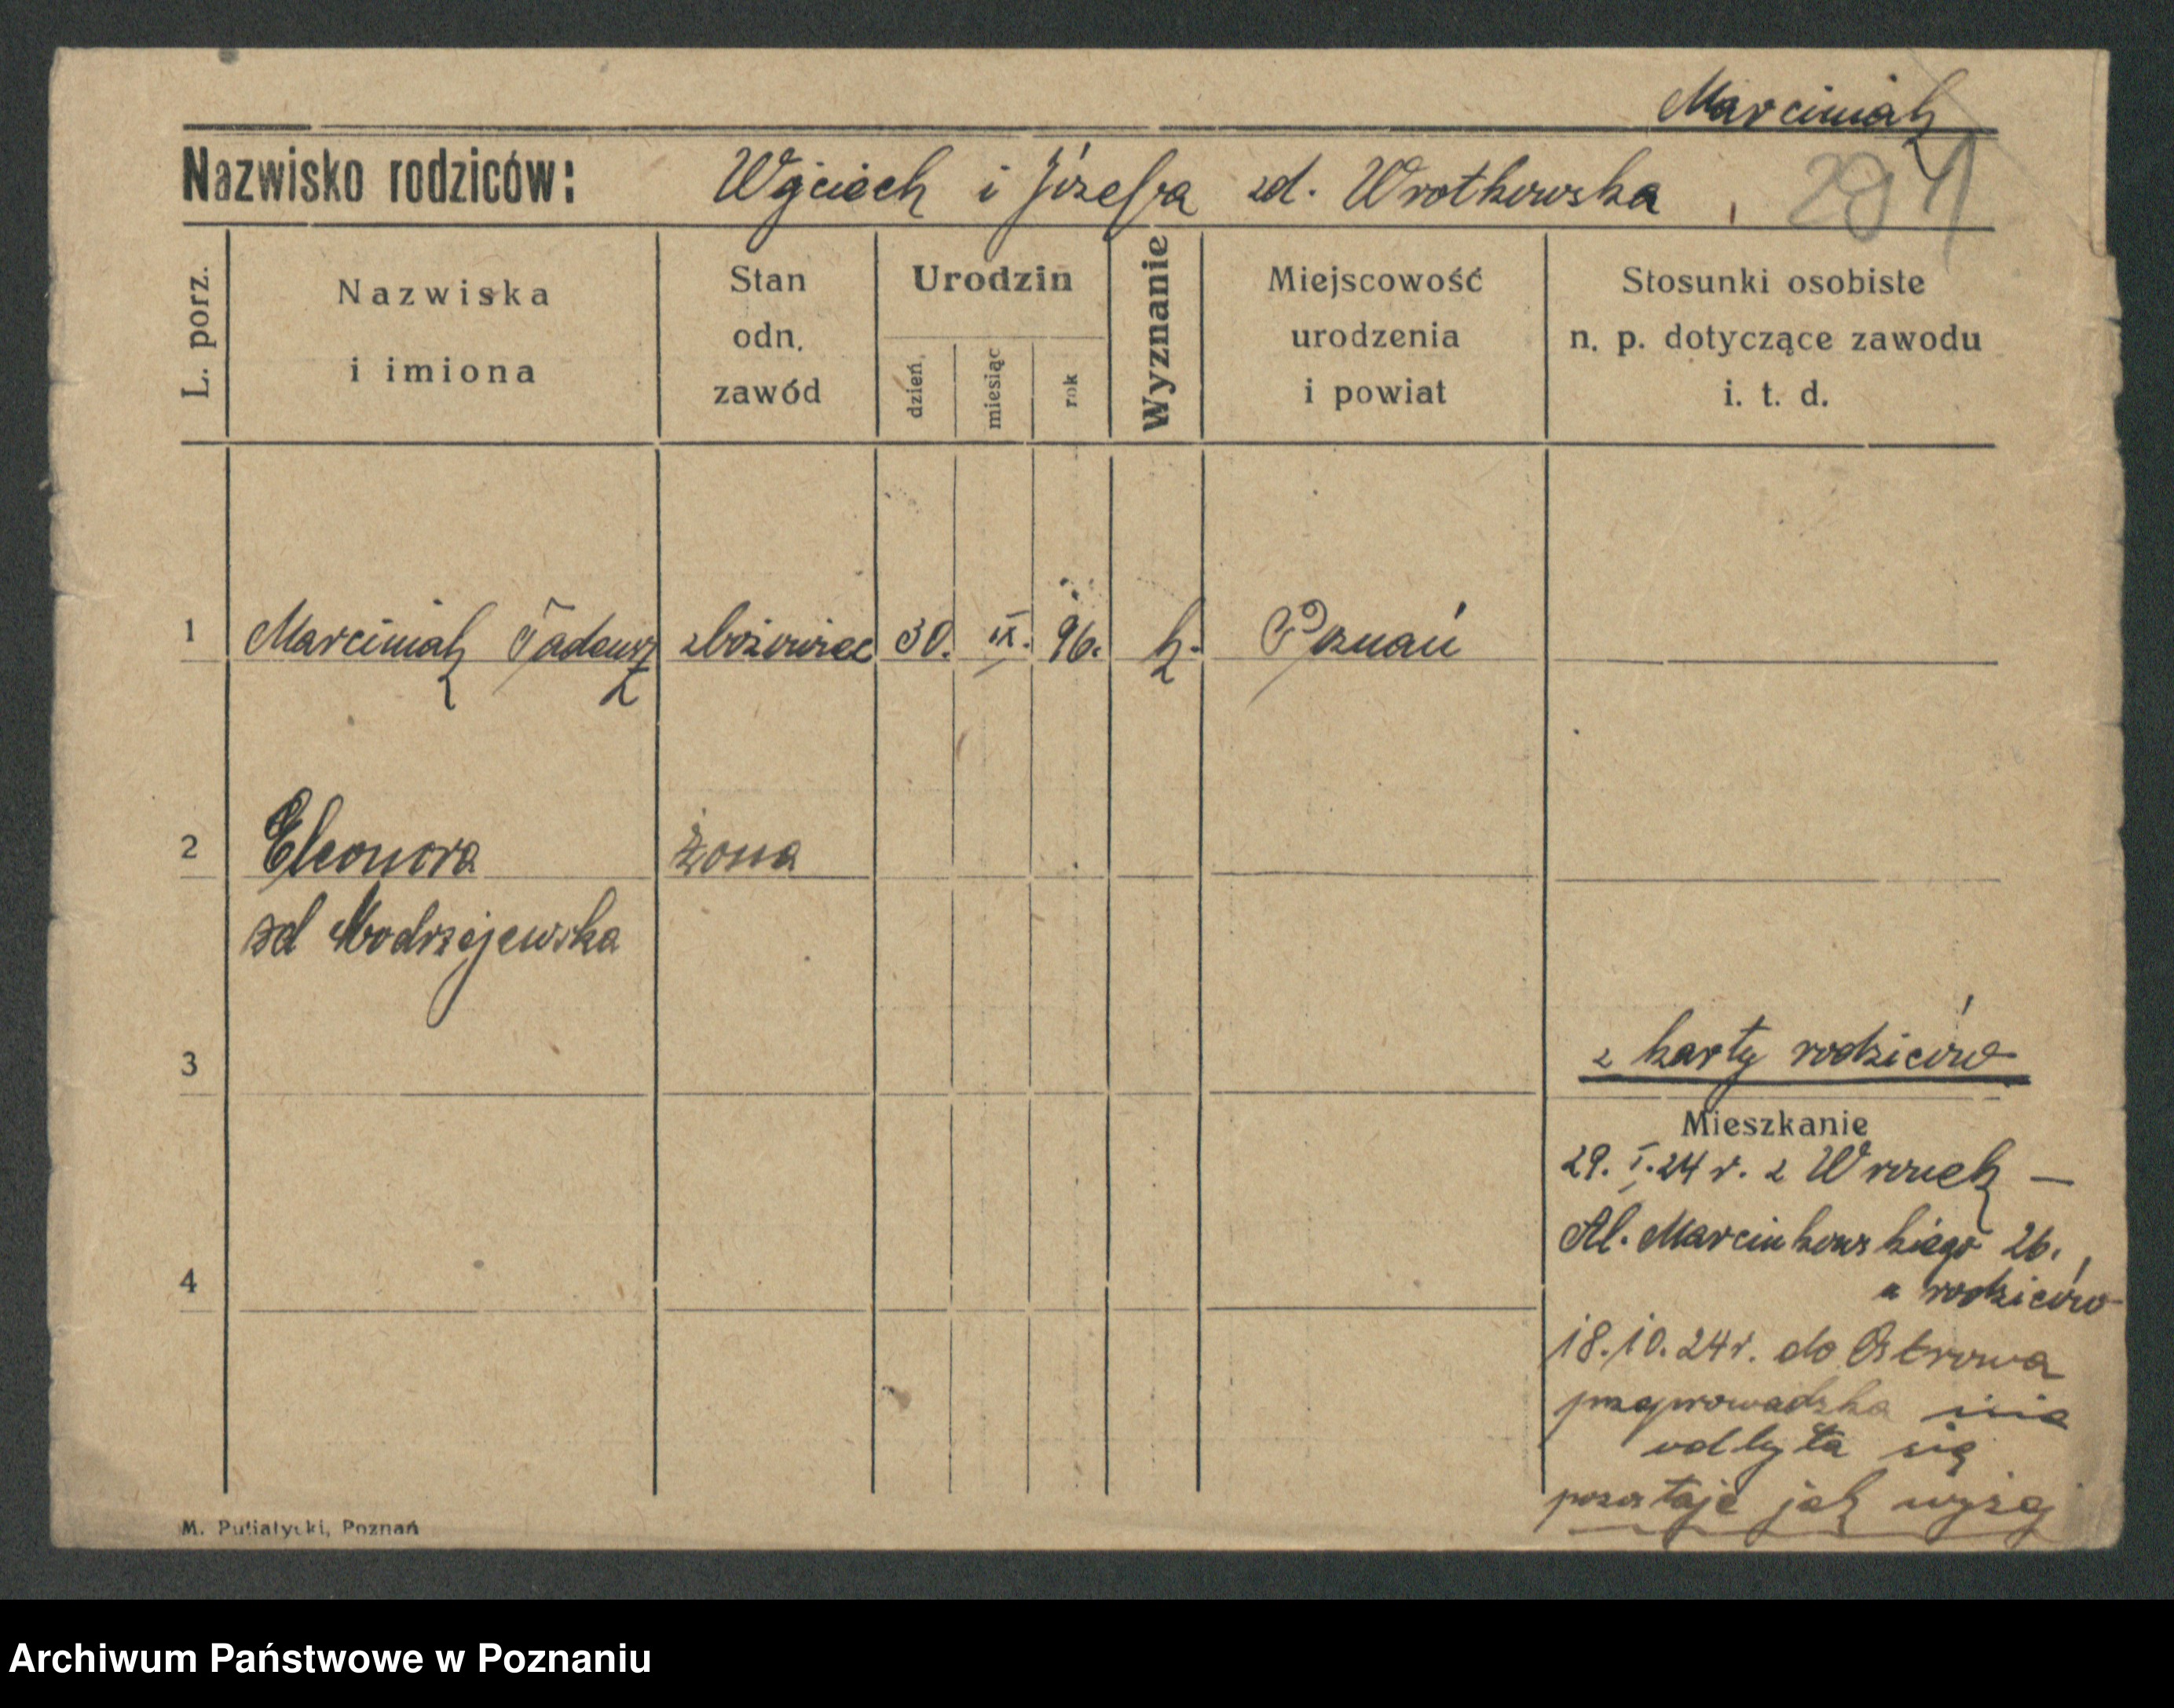 Marciniak
Nazwisko rodziców: Wojciech i Józefa zd. Wrotkowska
L. porz.
Nazwiska i imiona
Stan odn. zawód
Urodzin
dzień, miesiąc rok
Wyznanie
Miejscowość urodzenia i powiat
Stosunki osobiste n. p. dotyczące zawodu i. t. d.
1 Marciniak Tadeusz zbożowiec 30. IX. 96. k. Poznań
2 Eleonora żona
zd Modrzejewska
3
z karty rodziców
Mieszkanie
29. I. 24 r. z Wronek —
Al. Marcinkowskiego 26.
u rodziców
4
18.10.24 r. do Ostrowa
przeprowadzka nie
odbyła się
pozostaje jak wyżej
M. Putiatycki, Poznań
Archiwum Państwowe w Poznaniu